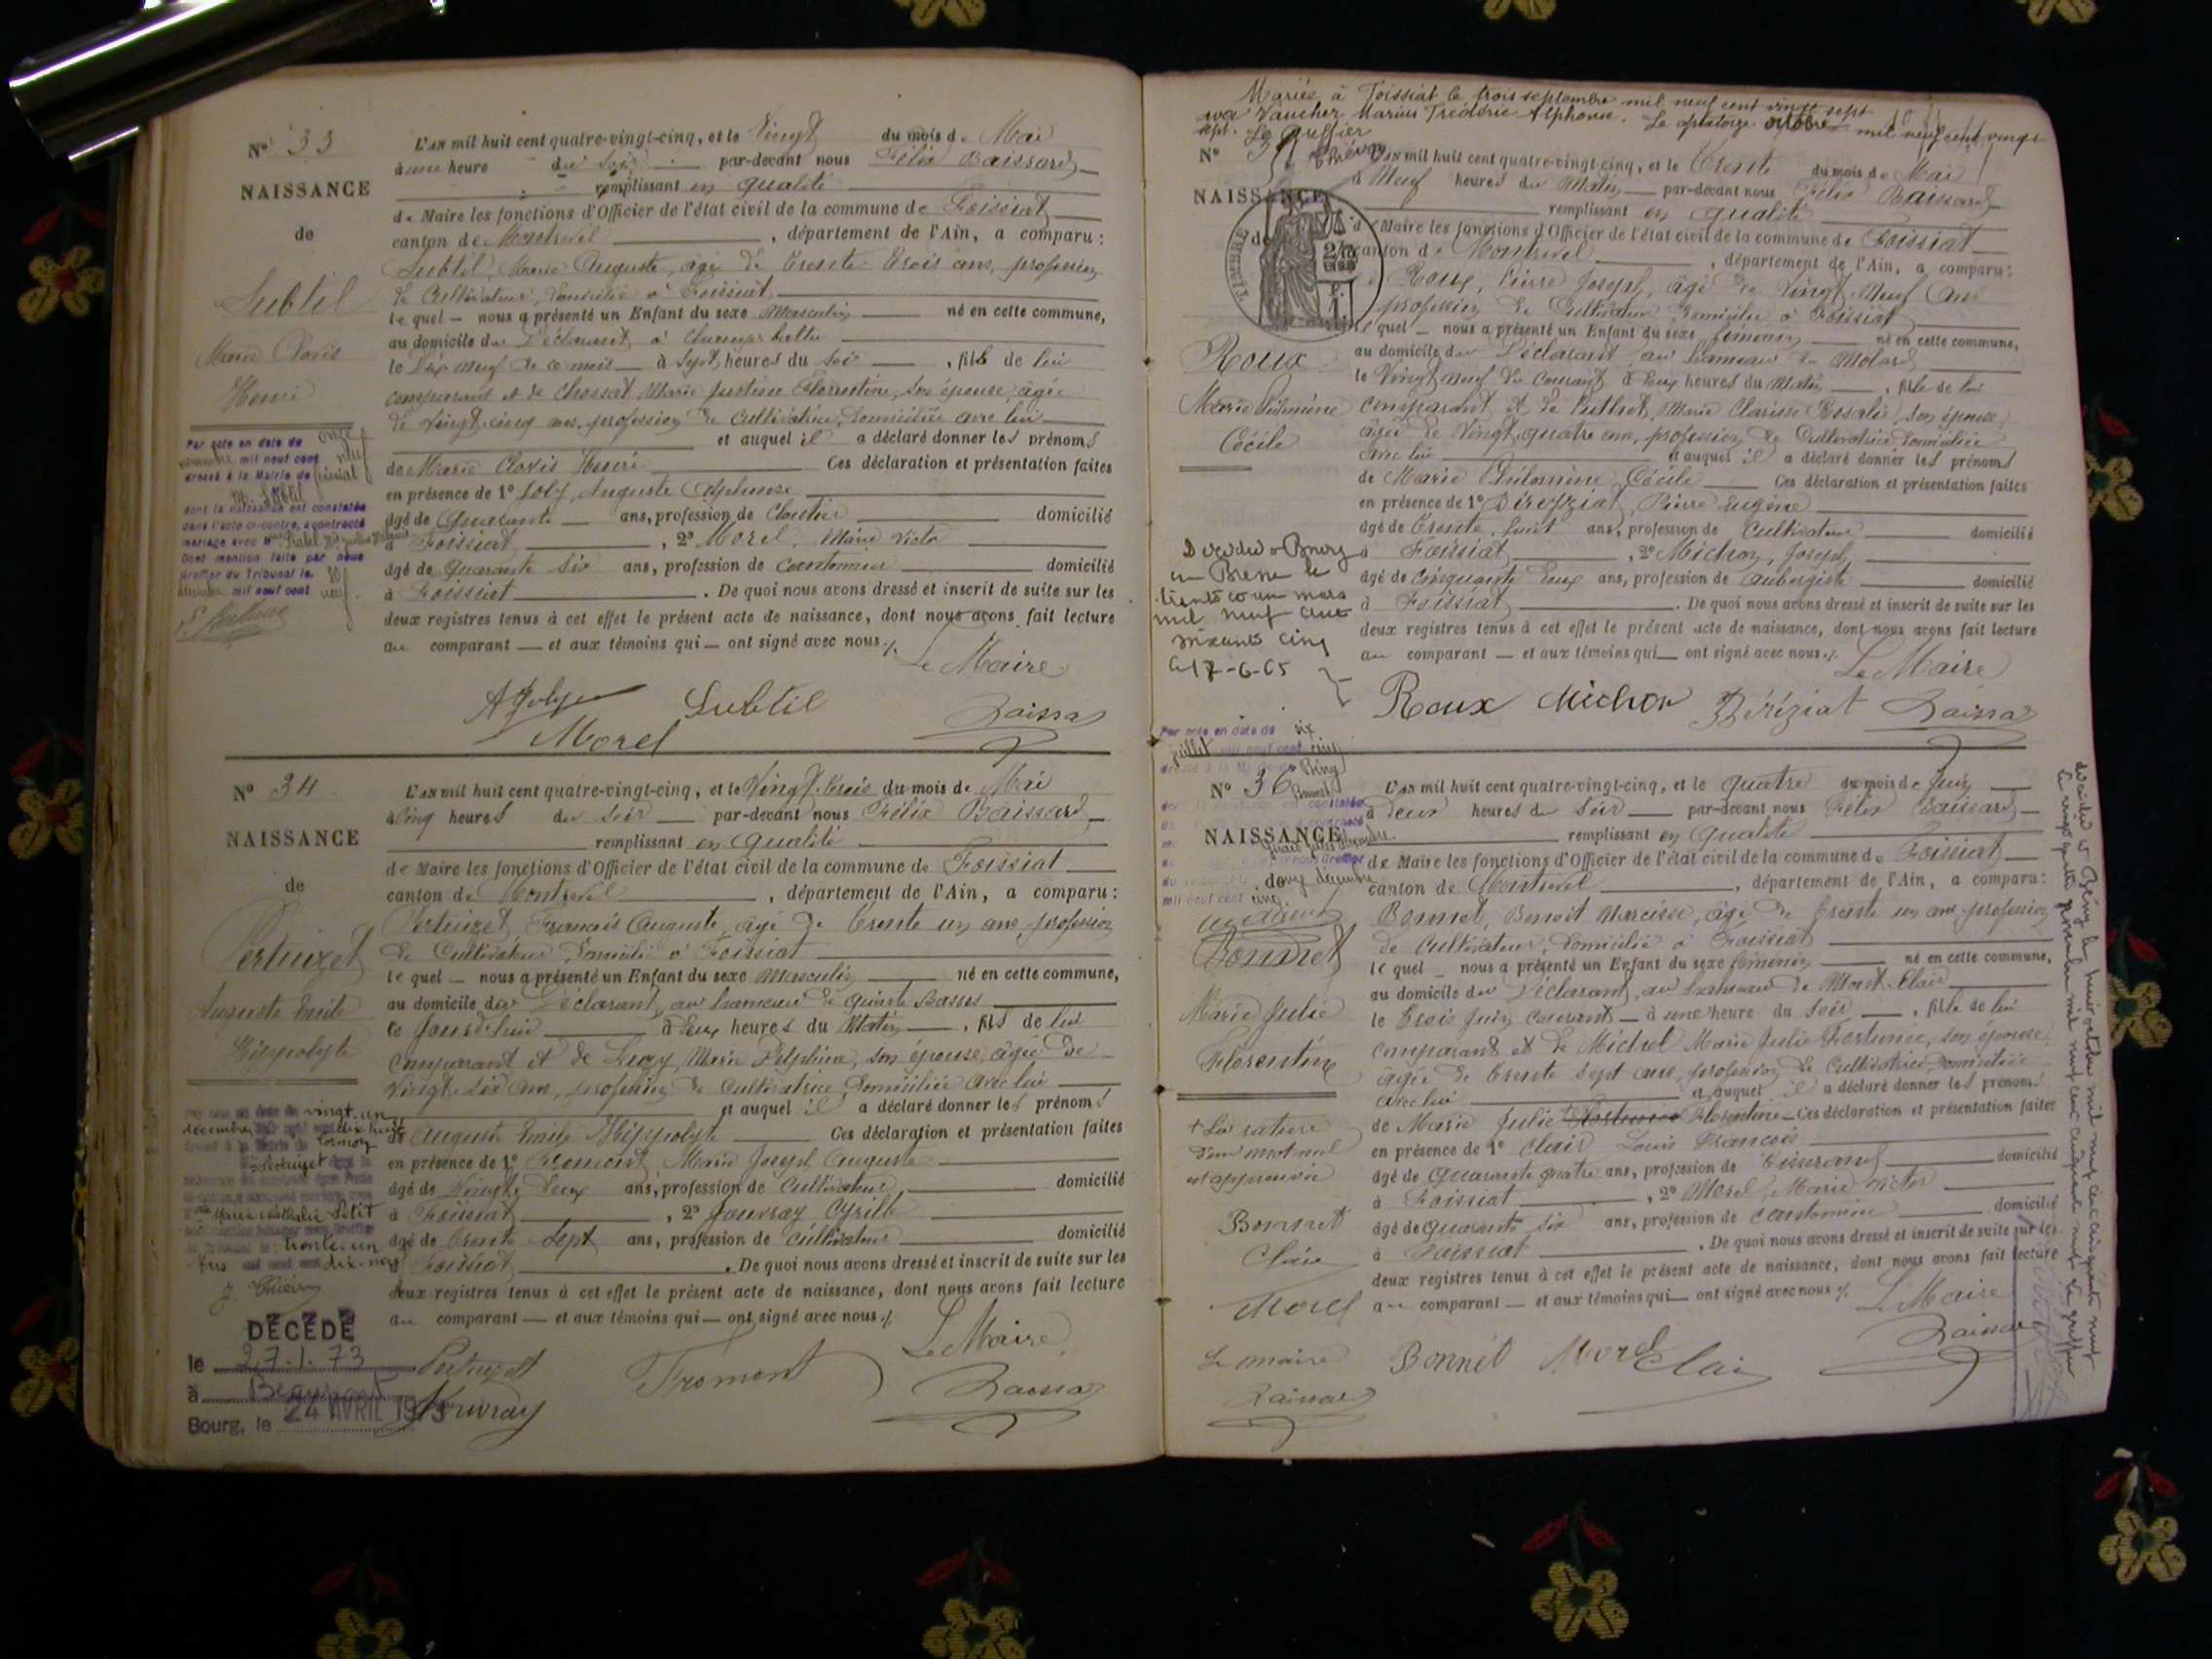 N° 33
NAISSANCE
de
Subtil
Marie Clovis
Henri
Par acte en date du onze
novembre mil neuf cent neuf
dressé à la Mairie de Foissiat
M. Subtil
dont la naissance est constatée
dans l'acte ci-contre, a contracté
mariage avec M
Dont mention faite par nous
Greffier du Tribunal le
mil neuf cent neuf
L'an mil huit cent quatre-vingt-cinq, et le Vingt du mois de Mai
à une heure du Soir par-devant nous Félix Baissard
remplissant en qualité
de Maire les fonctions d'Officier de l'état civil de la commune de Foissiat
canton de Montrevel, département de l'Ain, a comparu :
Subtil, Marie Auguste, âgé de trente trois ans, profession
de Cultivateur, domicilié à Foissiat
lequel nous a présenté un Enfant du sexe Masculin né en cette commune,
au domicile du Déclarant à
le Dix neuf de ce mois à Sept heures du Soir, fils de lui
comparant et de Chossat Marie Justine Florentine, son épouse âgée
de Vingt-cinq ans, profession de Cultivatrice, domiciliée avec lui
et auquel il a déclaré donner les prénoms
de Marie Clovis Henri Ces déclaration et présentation faites
en présence de 1° Joly, Auguste Alphonse
âgé de Quarante ans, profession de Cloutier domicilié
à Foissiat, 2° Morel, Marie Victor
âgé de Quarante Six ans, profession de Cantonnier domicilié
à Foissiat. De quoi nous avons dressé et inscrit de suite sur les
deux registres tenus à cet effet le présent acte de naissance, dont nous avons fait lecture
au comparant et aux témoins qui ont signé avec nous ./.
Le Maire
A Joly Subtil Baissard
Morel
N° 34
NAISSANCE
de
Pertuizet
Auguste Emile
Hippolyte
vingt-un
décembre dix huit
Cormoz
Pertuizet
Marie Nathalie Petit
trente un
dix-neuf
J. Thiévon
DÉCÉDÉ
le 27.1.73
à Beaupont
Bourg, le 24 AVRIL 1973
L'an mil huit cent quatre-vingt-cinq, et le Vingt-trois du mois de Mai
à Cinq heures du Soir par-devant nous Félix Baissard
remplissant en qualité
de Maire les fonctions d'Officier de l'état civil de la commune de Foissiat
canton de Montrevel, département de l'Ain, a comparu :
Pertuizet, François Auguste, âgé de trente un ans, profession
de Cultivateur, domicilié à Foissiat
lequel nous a présenté un Enfant du sexe Masculin né en cette commune,
au domicile du Déclarant, au hameau de
ce Jourd'hui à Deux heures du Matin, fils de lui
comparant et de Marie Delphine, son épouse, âgée de
Vingt-Six ans, profession de Cultivatrice, domiciliée avec lui
et auquel il a déclaré donner les prénoms
de Auguste Emile Hippolyte Ces déclaration et présentation faites
en présence de 1° Fromont, Marie Joseph Auguste
âgé de Vingt Deux ans, profession de Cultivateur, domicilié
à Foissiat, 2° Jouvray Cyrille
âgé de trente Sept ans, profession de Cultivateur domicilié
à Foissiat. De quoi nous avons dressé et inscrit de suite sur les
deux registres tenus à cet effet le présent acte de naissance, dont nous avons fait lecture
au comparant et aux témoins qui ont signé avec nous ./.
Le Maire,
Pertuizet Fromont Baissard
Jouvray
Mariée à Foissiat le trois septembre mil neuf cent vingt sept
avec Vaucher Marius Frédéric Alphonse. Le quatorze octobre mil neuf cent vingt
sept. Le Greffier
Thiévon
N° 35
NAISSANCE
de
TIMBRE
Roux
Marie Philomène
Cécile
Décédée à Bourg
en Bresse le
trente et un mars
mil neuf cent
soixante cinq
le 17-6-65
L'an mil huit cent quatre-vingt-cinq, et le Trente du mois de Mai
à Neuf heures du Matin par-devant nous Félix Baissard
remplissant en qualité
de Maire les fonctions d'Officier de l'état civil de la commune de Foissiat
canton de Montrevel, département de l'Ain, a comparu :
Roux, Pierre Joseph, âgé de Vingt Neuf Ans
profession de Cultivateur domicilié à Foissiat
lequel nous a présenté un Enfant du sexe féminin né en cette commune,
au domicile du Déclarant au hameau du Molard
le Vingt neuf du Courant à Deux heures du Matin, fille de lui
comparant et de Puthet, Marie Clarisse Rosalie, son épouse
âgée de Vingt quatre ans, profession de Cultivatrice domiciliée
avec lui et auquel il a déclaré donner les prénoms
de Marie Philomène Cécile Ces déclaration et présentation faites
en présence de 1° Béréziat, Pierre Eugène
âgé de Trente huit ans, profession de Cultivateur domicilié
à Foissiat, 2° Michon, Joseph
âgé de Cinquante Deux ans, profession de Aubergiste domicilié
à Foissiat. De quoi nous avons dressé et inscrit de suite sur les
deux registres tenus à cet effet le présent acte de naissance, dont nous avons fait lecture
au comparant et aux témoins qui ont signé avec nous ./.
Le Maire
Roux Michon Béréziat Baissard
Par acte en date du six
juillet mil neuf cent cinq
Bény
Bonnet
douze décembre
mil neuf cent cinq
N° 36
NAISSANCE
de
Bonnet
Marie Julie
Florentine
+ La rature
d'un mot nul
est approuvée
Bonnet
Clair
Morel
Le maire
Baissard
L'an mil huit cent quatre-vingt-cinq, et le quatre du mois de Juin
à Deux heures du Soir par-devant nous Félix Baissard
remplissant en qualité
de Maire les fonctions d'Officier de l'état civil de la commune de Foissiat
canton de Montrevel, département de l'Ain, a comparu :
Bonnet, Benoit Narcisse, âgé de trente un ans profession
de Cultivateur, domicilié à Foissiat
lequel nous a présenté un Enfant du sexe féminin né en cette commune,
au domicile du Déclarant, au hameau de Mont
le Trois Juin Courant à une heure du Soir, fille de lui
comparant et de Michel Marie Julie Fortunée, son épouse,
âgée de trente Sept ans, profession de Cultivatrice, domiciliée
avec lui et auquel il a déclaré donner les prénoms
de Marie Julie Florentine Ces déclaration et présentation faites
en présence de 1° Clair Louis François
âgé de Quarante quatre ans, profession de Tisserand domicilié
à Foissiat, 2° Morel, Marie Victor
âgé de quarante Six ans, profession de Cantonnier domicilié
à Foissiat. De quoi nous avons dressé et inscrit de suite sur les
deux registres tenus à cet effet le présent acte de naissance, dont nous avons fait lecture
au comparant et aux témoins qui ont signé avec nous ./.
Le Maire
Bonnet Morel Clair Baissard
décédée à Bény le huit octobre mil neuf cent cinquante neuf
Le vingt quatre novembre mil neuf cent cinquante neuf Le greffier